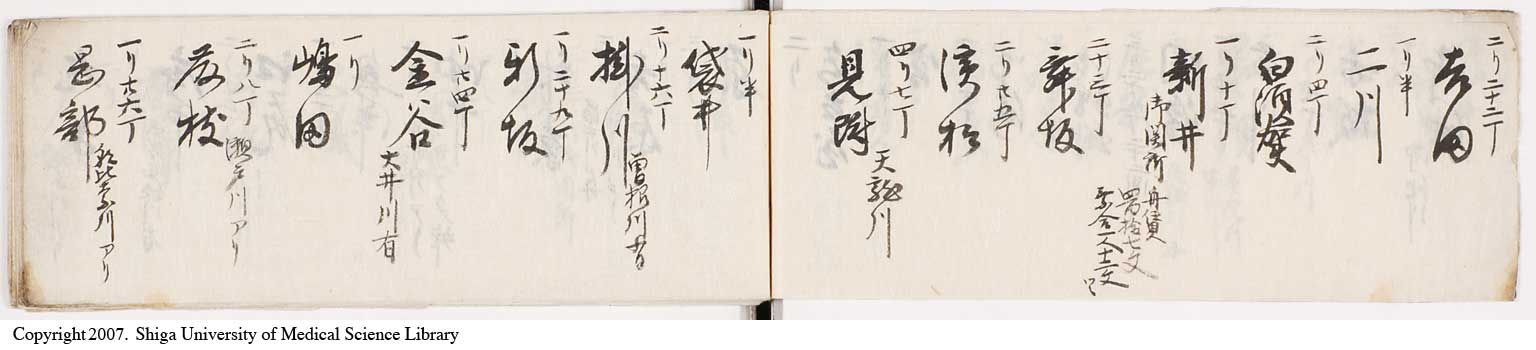 二リ二十二丁
吉田
一リ半
二川
二リ四丁
白須賀
一リ十丁
新井
御関所
舟賃
四百拾七文
乗合一人十二文
二十三丁
舞坂
二リ廿五丁
浜松
四リ七丁
見附
天龍川
一リ半
袋井
二リ十六丁
掛川
曽根川有
一リ二十九丁
新坂
一リ廿四丁
金谷
大井川有
一リ
嶋田
二リ八丁
藤枝
瀬戸川アリ
一リ廿六丁
岡部
川アリ
Copyright 2007. Shiga University of Medical Science Library